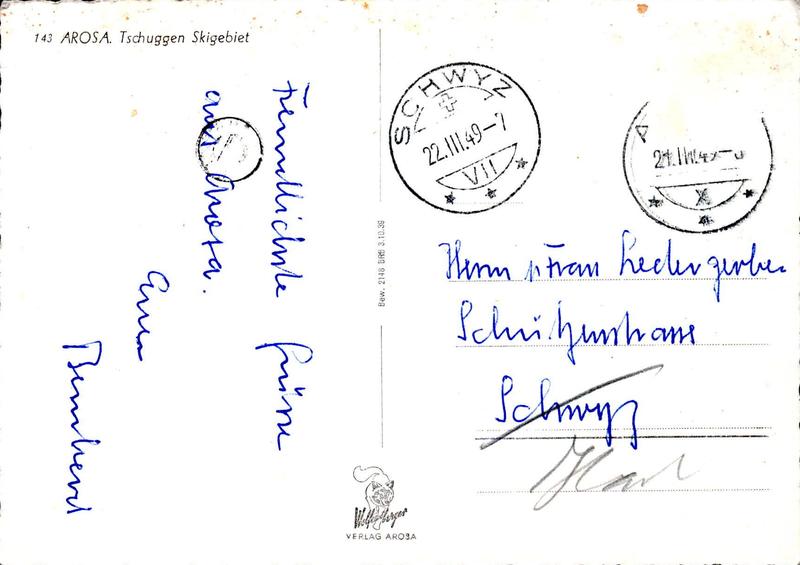 143 AROSA. Tschuggen Skigebiet
Freundlichste Grüsse
aus Arosa.
Euer
Bernhard
SCHWYZ
22.III.49-7
VII
21.III.49
X
Bew. 2148 BRB 3.10.39
Herrn u Frau Ledergerber
Schützenstrasse
Schwyz
VERLAG AROSA